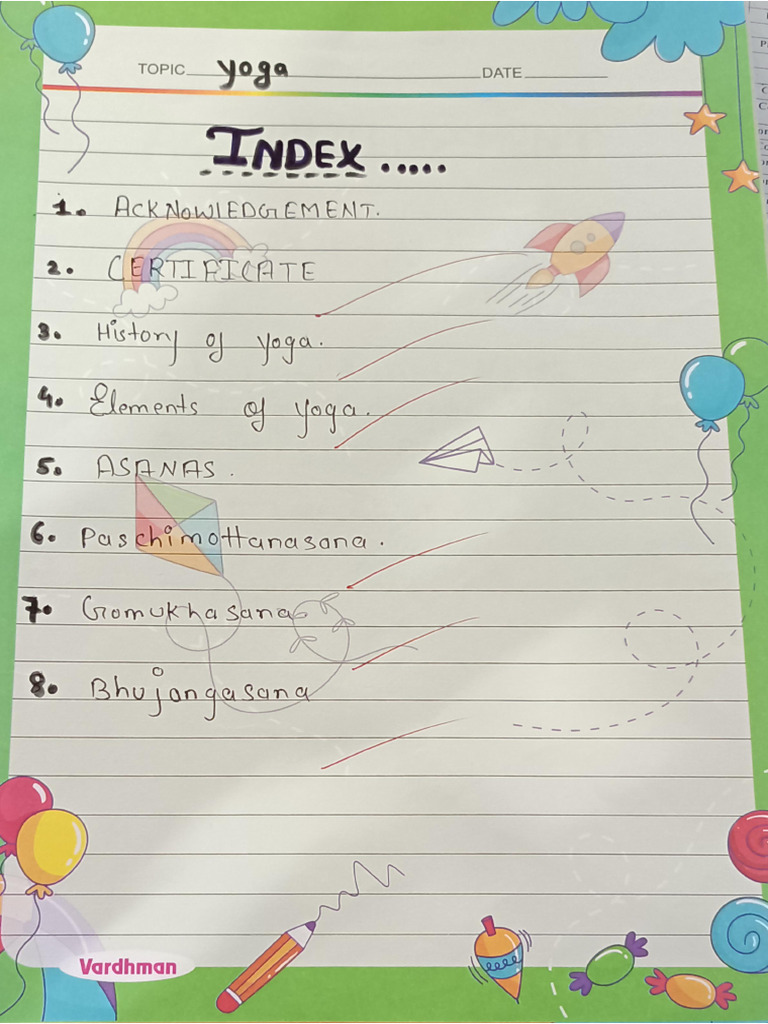 TOPIC Yoga DATE
INDEX .....
1. ACKNOWLEDGEMENT.
2. CERTIFICATE
3. History of yoga.
4. Elements of yoga.
5. ASANAS.
6. Paschimottanasana.
7. Gomukhasana
8. Bhujangasana
Vardhman